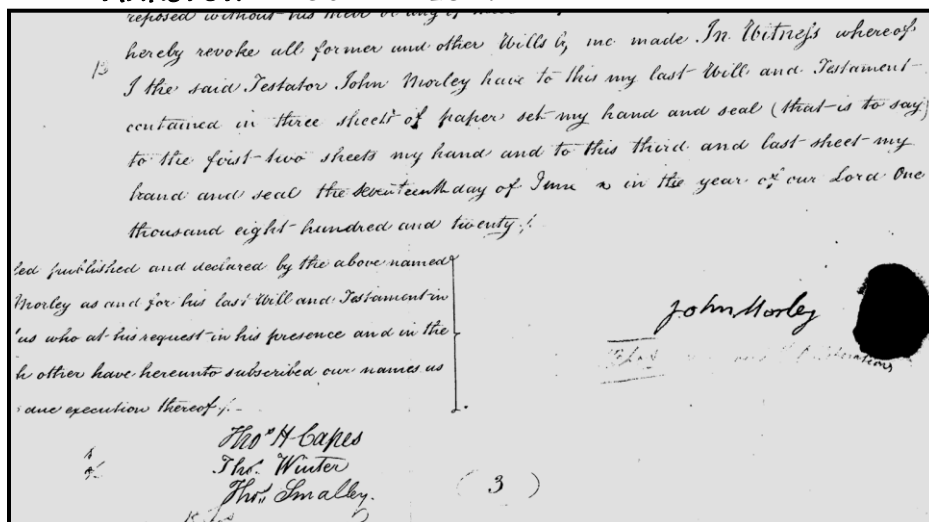 reposed without his
hereby revoke all former and other Wills by me made In Witness whereof
13
I the said Testator John Morley have to this my last Will and Testament
contained in three sheets of paper set my hand and seal (that is to say)
to the first two sheets my hand and to this third and last sheet my
hand and seal the seventeenth day of June in the year of our Lord One
thousand eight hundred and twenty /.
led published and declared by the above named
Morley as and for his last Will and Testament in
us who at his request in his presence and in the
h other have hereunto subscribed our names as
due execution thereof /.
John Morley
Thos H Capes
Thos. Winter
Thos. Smalley.
( 3 )